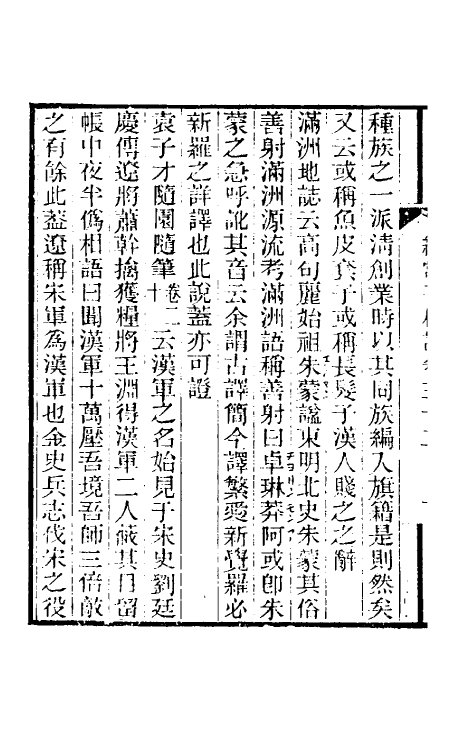 種族之一派淸創業時以其同族編入旗籍是則然矣
又云或稱魚皮㺅子或稱長髮子漢人賤之之辭
滿洲地誌云高句麗始祖朱蒙諡東明北史朱蒙其俗
善射滿洲源流考滿洲語稱善射曰卓琳莽阿或卽朱
蒙之急呼訛其音云余謂古譯簡今譯繁愛新覺羅必
新羅之詳譯也此說蓋亦可證
袁子才隨園隨筆卷十二云漢軍之名始見于宋史劉廷
慶傳遼將蕭幹擒獲糧將王淵得漢軍二人蔽其目留
帳中夜半僞相語曰聞漢軍十萬壓吾境吾師三倍敵
之有餘此葢遼稱宋軍爲漢軍也金史兵志伐宋之役